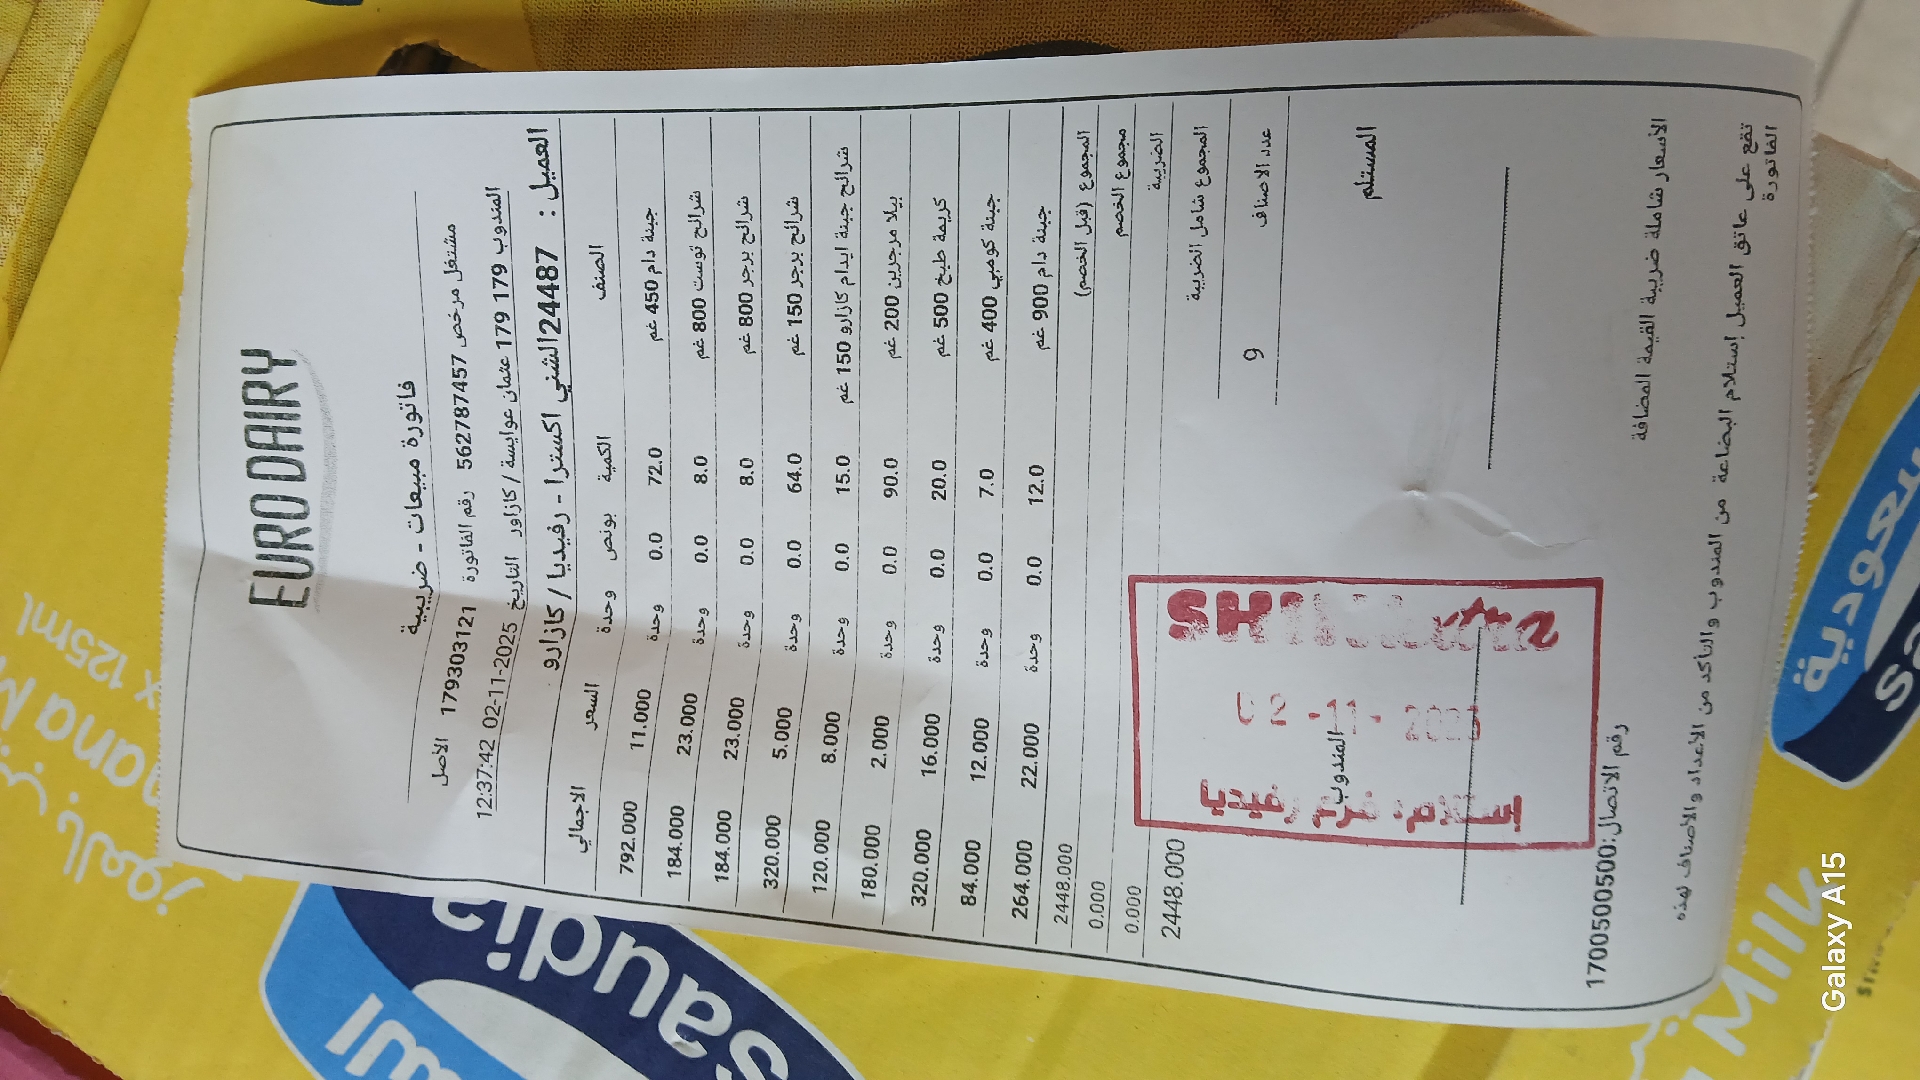 EURO DAIRY
فاتورة مبيعات - ضريبية
مشتغل مرخص 562787457 رقم الفاتورة 179303121 الاصل
المندوب 179 179 عثمان عوايسة / كازارو التاريخ 02-11-2025 12:37:42
العميل : 24487الشني اكسترا - رفيديا / كازارو
الصنف الكمية بونص وحدة السعر الاجمالي
جبنة دام 450 غم 72.0 0.0 وحدة 11.000 792.000
شرائح توست 800 غم 8.0 0.0 وحدة 23.000 184.000
شرائح برجر 800 غم 8.0 0.0 وحدة 23.000 184.000
شرائح برجر 150 غم 64.0 0.0 وحدة 5.000 320.000
شرائح جبنة ايدام كازارو 150 غم 15.0 0.0 وحدة 8.000 120.000
بيلا مرجرين 200 غم 90.0 0.0 وحدة 2.000 180.000
كريمة طبخ 500 غم 20.0 0.0 وحدة 16.000 320.000
جبنة كومبي 400 غم 7.0 0.0 وحدة 12.000 84.000
جبنة دام 900 غم 12.0 0.0 وحدة 22.000 264.000
المجموع (قبل الخصم) 2448.000
مجموع الخصم 0.000
الضريبة 0.000
المجموع شامل الضريبة 2448.000
عدد الاصناف 9
المستلم المندوب
الأسعار شاملة ضريبة القيمة المضافة
رقم الاتصال:1700500500
تقع على عاتق العميل إستلام البضاعة من المندوب والتأكد من الأعداد والأصناف لهذه
الفاتورة
بالموز
x 125ml
Saudia
السعودية
Milk
Galaxy A15